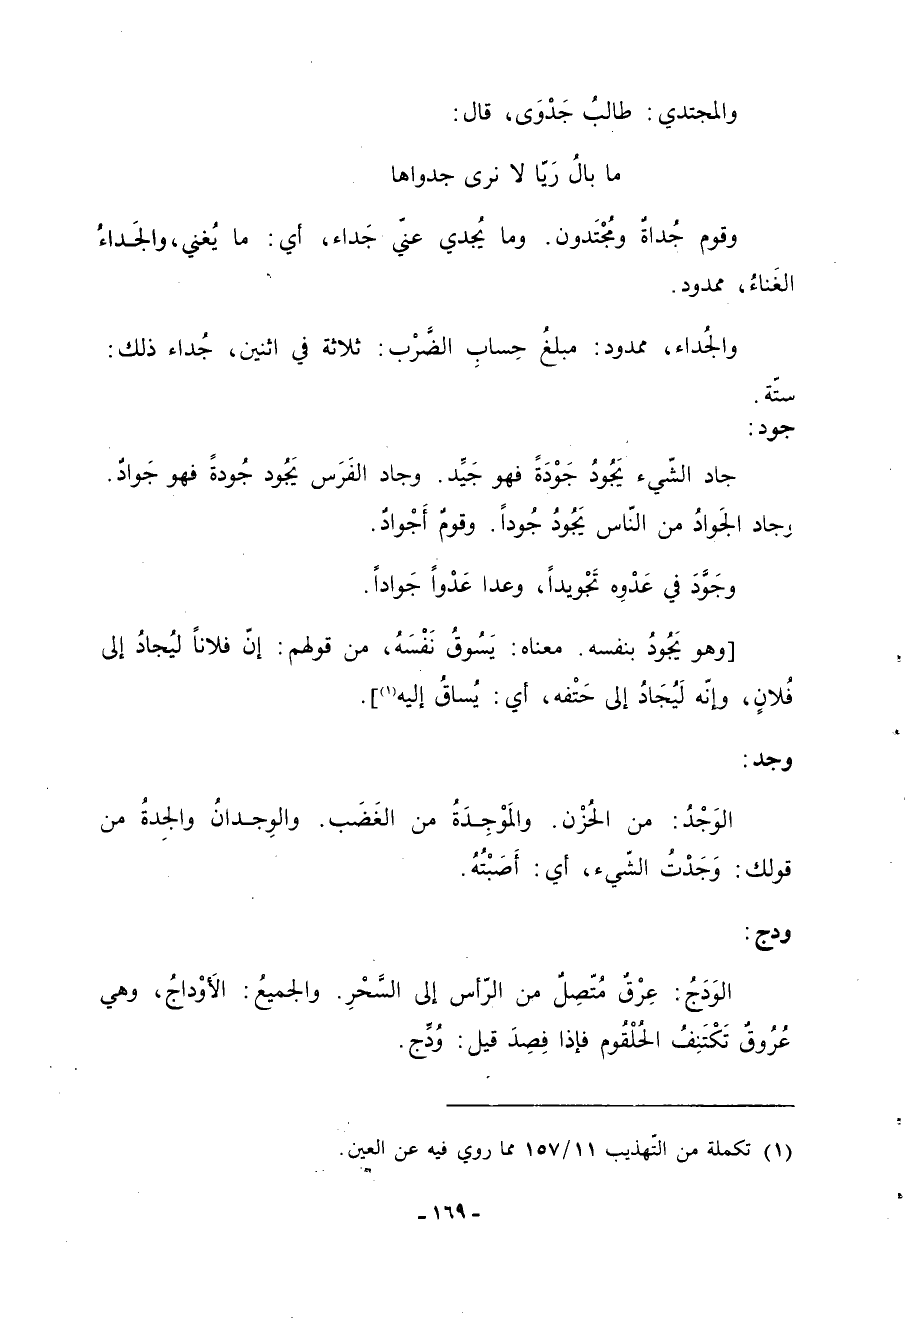 والمجتدي: طالبُ جَدْوَى، قال:
ما بالُ رَيّا لا نرى جدواها
وقوم جُداةٌ ومُجْتَدون. وما يُجدي عنّي جَداء، أي: ما يُغني، والجَداءُ
الغَناءُ، ممدود.
والجُداء، ممدود: مبلغُ حِسابِ الضَّرْب: ثلاثة في اثنين، جُداء ذلك:
ستّة.
جود:
جاد الشّيء يَجُودُ جَوْدَةً فهو جَيِّد. وجاد الفَرَس يَجُود جُودةً فهو جَوادٌ.
وجاد الجَوادُ من النّاس يَجُودُ جُوداً. وقومٌ أَجْوادٌ.
وجَوَّدَ في عَدْوِه تَجْويداً، وعدا عَدْواً جَواداً.
[وهو يَجُودُ بنفسه. معناه: يَسُوقُ نَفْسَهُ، من قولهم: إنّ فلاناً لَيُجادُ إلى
فُلانٍ، وإنّه لَيُجَادُ إلى حَتْفه، أي: يُساقُ إليه(١)].
وجد:
الوَجْدُ: من الحُزْن. والمَوْجِدَةُ من الغَضَب. والوِجدانُ والجِدةُ من
قولك: وَجَدْتُ الشّيء، أي: أَصَبْتُهُ.
ودج:
الوَدَجُ: عِرْقٌ مُتّصِلٌ من الرّأس إلى السَّحْرِ. والجميعُ: الأَوْداجُ، وهي
عُرُوقٌ تَكْتَنِفُ الحُلْقُوم فإذا فِصِدَ قيل: وُدِّج.
(١) تكملة من التّهذيب ١١/١٥٧ مما روي فيه عن العين.
- ١٦٩ -